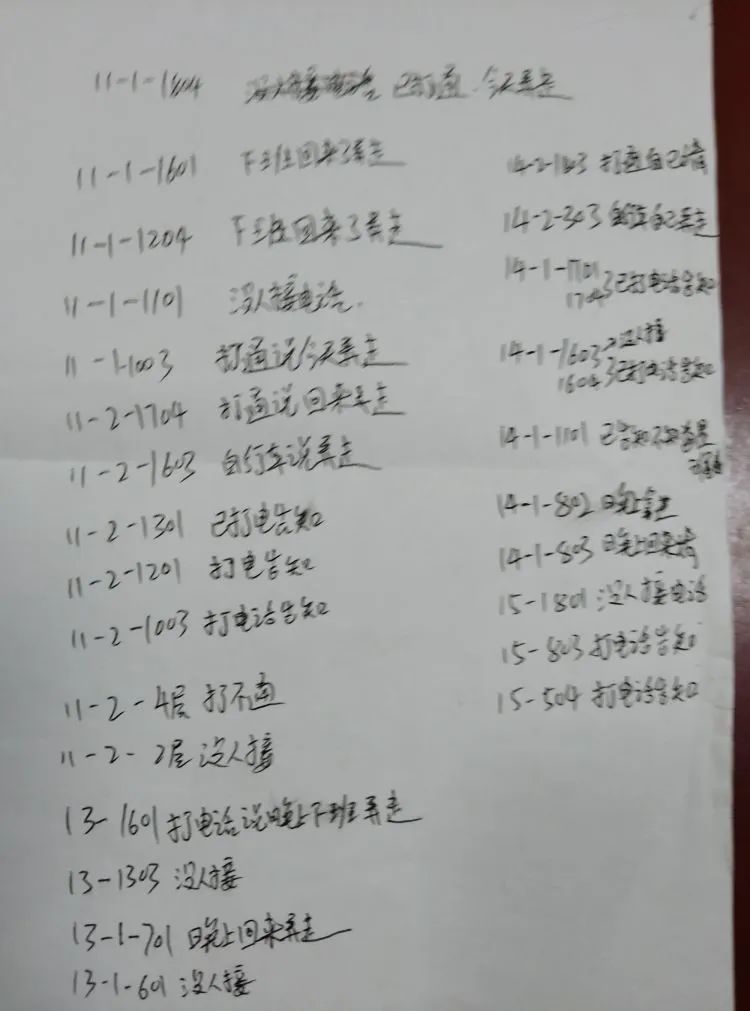 11-1-1604 已打通 今天弄走
11-1-1601 下班回来了弄走
11-1-1204 下班回来了弄走
11-1-1101 没人接电话.
11-1-1003 打通说今天弄走
11-2-1704 打通说回来弄走
11-2-1603 自行车说弄走
11-2-1301 已打电告知
11-2-1201 打电告知
11-2-1003 打电话告知
11-2-4层 打不通
11-2-2层 没人接
13-1601 打电话说晚上下班弄走
13-1303 没人接
13-1-701 晚上回来弄走
13-1-601 没人接
14-2-1 打通自己清
14-2-303 自己弄走
14-1-1701
1704 已打电话告知
14-1-1603 没人接
1604 已打电话告知
14-1-1101 已告知不知道是
14-1-802 晚上拿走
14-1-803 晚上回来清
15-1801 没人接电话
15-803 打电话告知
15-504 打电话告知